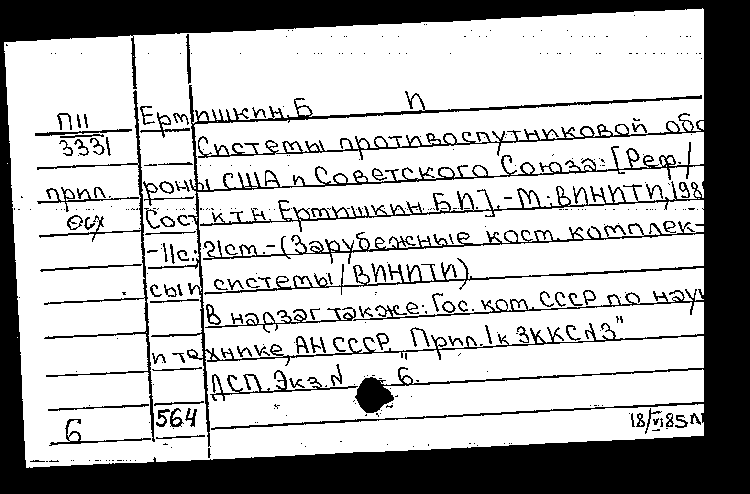 П11 Ертишкин, Б И
3331 Системы противоспутниковой обо
прил. роны США и Советского Союза: [Реф./
Сост к.т.н. Ертишкин Б.И.]. - М.: ВИНИТИ, 198
-11с.; 21см. - (Зарубежные косм. комплек-
сы и системы / ВИНИТИ)
В надзаг также: Гос. ком. СССР по наук
и технике, АН СССР. "Прил. 1 к ЗККС N3"
ДСП. Экз. N 6.
6 564 18/VI 85